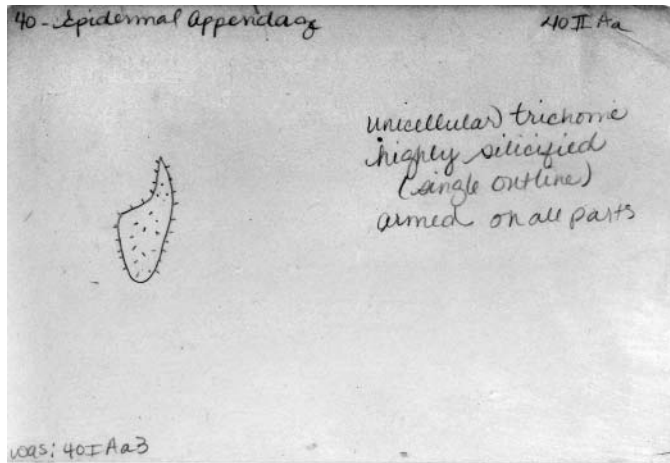 40 - Epidermal Appendage
40 II Aa
unicellular trichome
highly silicified
(single outline)
armed on all parts
was: 40 I Aa3